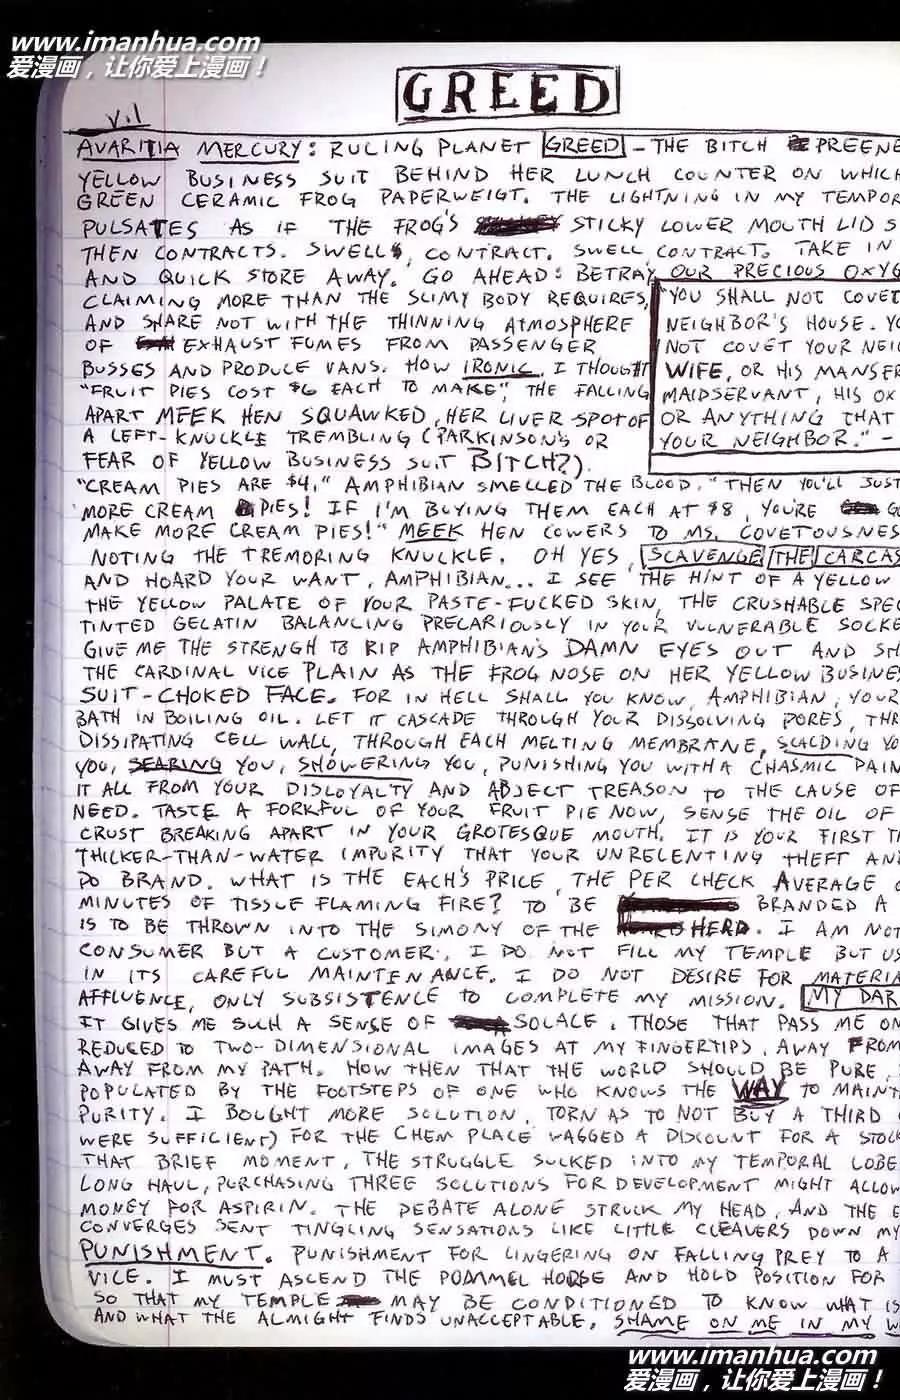 www.imanhua.com
爱漫画，让你爱上漫画！
GREED
V.1
AVARITIA MERCURY: RULING PLANET GREED - THE BITCH PREENE
YELLOW BUSINESS SUIT BEHIND HER LUNCH COUNTER ON WHICH
GREEN CERAMIC FROG PAPERWEIGT. THE LIGHTNING IN MY TEMPOR
PULSATES AS IF THE FROG'S STICKY LOWER MOUTH LID S
THEN CONTRACTS. SWELLS, CONTRACT. SWELL, CONTRACT. TAKE IN
AND QUICK STORE AWAY. GO AHEAD: BETRAY OUR PRECIOUS OXYG
CLAIMING MORE THAN THE SLIMY BODY REQUIRES,
AND SHARE NOT WITH THE THINNING ATMOSPHERE
OF EXHAUST FUMES FROM PASSENGER
BUSSES AND PRODUCE VANS. HOW IRONIC, I THOUGHT
"FRUIT PIES COST $6 EACH TO MAKE", THE FALLING
APART MEEK HEN SQUAWKED, HER LIVER SPOT OF
A LEFT-KNUCKLE TREMBLING (PARKINSON'S OR
FEAR OF YELLOW BUSINESS SUIT BITCH?).
"YOU SHALL NOT COVET
NEIGHBOR'S HOUSE. YO
NOT COVET YOUR NEI
WIFE, OR HIS MANSER
MAIDSERVANT, HIS OX
OR ANYTHING THAT
YOUR NEIGHBOR." -
"CREAM PIES ARE $4," AMPHIBIAN SMELLED THE BLOOD. "THEN YOU'LL JUST
MORE CREAM PIES! IF I'M BUYING THEM EACH AT $8, YOU'RE GO
MAKE MORE CREAM PIES!" MEEK HEN COWERS TO MS. COVETOUSNES
NOTING THE TREMORING KNUCKLE. OH YES, SCAVENGE THE CARCAS
AND HOARD YOUR WANT, AMPHIBIAN... I SEE THE HINT OF A YELLOW
THE YELLOW PALATE OF YOUR PASTE-FUCKED SKIN, THE CRUSHABLE SPEC
TINTED GELATIN BALANCING PRECARIOUSLY IN YOUR VULNERABLE SOCKE
GIVE ME THE STRENGH TO RIP AMPHIBIAN'S DAMN EYES OUT AND SH
THE CARDINAL VICE PLAIN AS THE FROG NOSE ON HER YELLOW BUSINES
SUIT-CHOKED FACE. FOR IN HELL SHALL YOU KNOW, AMPHIBIAN, YOUR
BATH IN BOILING OIL. LET IT CASCADE THROUGH YOUR DISSOLVING PORES, THR
DISSIPATING CELL WALL, THROUGH EACH MELTING MEMBRANE, SCALDING YO
YOU, SEARING YOU, SHOWERING YOU, PUNISHING YOU WITH A CHASMIC PAIN
IT ALL FROM YOUR DISLOYALTY AND ABJECT TREASON TO THE CAUSE OF
NEED. TASTE A FORKFUL OF YOUR FRUIT PIE NOW, SENSE THE OIL OF
CRUST BREAKING APART IN YOUR GROTESQUE MOUTH. IT IS YOUR FIRST TH
THICKER-THAN-WATER IMPURITY THAT YOUR UNRELENTING THEFT AN
DO BRAND. WHAT IS THE EACH'S PRICE, THE PER CHECK AVERAGE
MINUTES OF TISSUE FLAMING FIRE? TO BE BRANDED A
IS TO BE THROWN INTO THE SIMONY OF THE HERD. I AM NOT
CONSUMER BUT A CUSTOMER. I DO NOT FILL MY TEMPLE BUT US
IN ITS CAREFUL MAINTENANCE. I DO NOT DESIRE FOR MATERIA
AFFLUENCE, ONLY SUBSISTENCE TO COMPLETE MY MISSION. MY DAR
IT GIVES ME SUCH A SENSE OF SOLACE. THOSE THAT PASS ME ON
REDUCED TO TWO-DIMENSIONAL IMAGES AT MY FINGERTIPS, AWAY FROM
AWAY FROM MY PATH. HOW THEN THAT THE WORLD SHOULD BE PURE,
POPULATED BY THE FOOTSTEPS OF ONE WHO KNOWS THE WAY TO MAINT
PURITY. I BOUGHT MORE SOLUTION, TORN AS TO NOT BUY A THIRD
WERE SUFFICIENT) FOR THE CHEM PLACE WAGGED A DISCOUNT FOR A STOCK
THAT BRIEF MOMENT, THE STRUGGLE SUCKED INTO MY TEMPORAL LOBE
LONG HAUL, PURCHASING THREE SOLUTIONS FOR DEVELOPMENT MIGHT ALLOW
MONEY FOR ASPIRIN. THE DEBATE ALONE STRUCK MY HEAD, AND THE E
CONVERGES SENT TINGLING SENSATIONS LIKE LITTLE CLEAVERS DOWN MY
PUNISHMENT. PUNISHMENT FOR LINGERING ON FALLING PREY TO A
VICE. I MUST ASCEND THE POMMEL HORSE AND HOLD POSITION FOR
SO THAT MY TEMPLE MAY BE CONDITIONED TO KNOW WHAT IS
AND WHAT THE ALMIGHT FINDS UNACCEPTABLE. SHAME ON ME IN MY W
www.imanhua.com
爱漫画，让你爱上漫画！